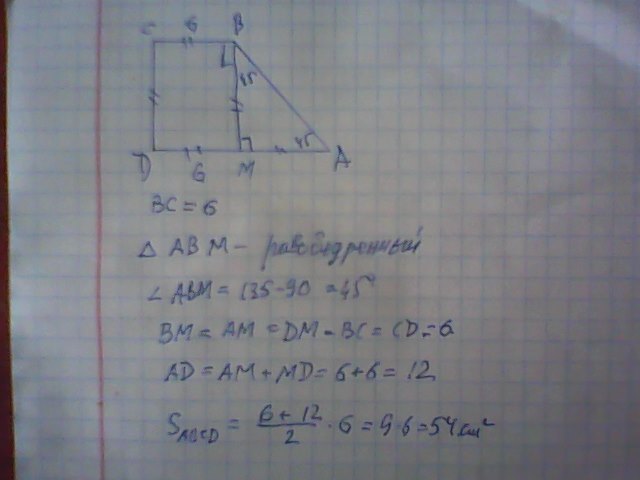 C 6 B
45
45
D 6 M A
BC = 6
△ ABM - равобедренный
∠ ABM = 135-90 = 45°
BM = AM = DM = BC = CD = 6
AD = AM + MD = 6+6 = 12
S_ABCD = (6+12)/2 · 6 = 9·6 = 54 см²